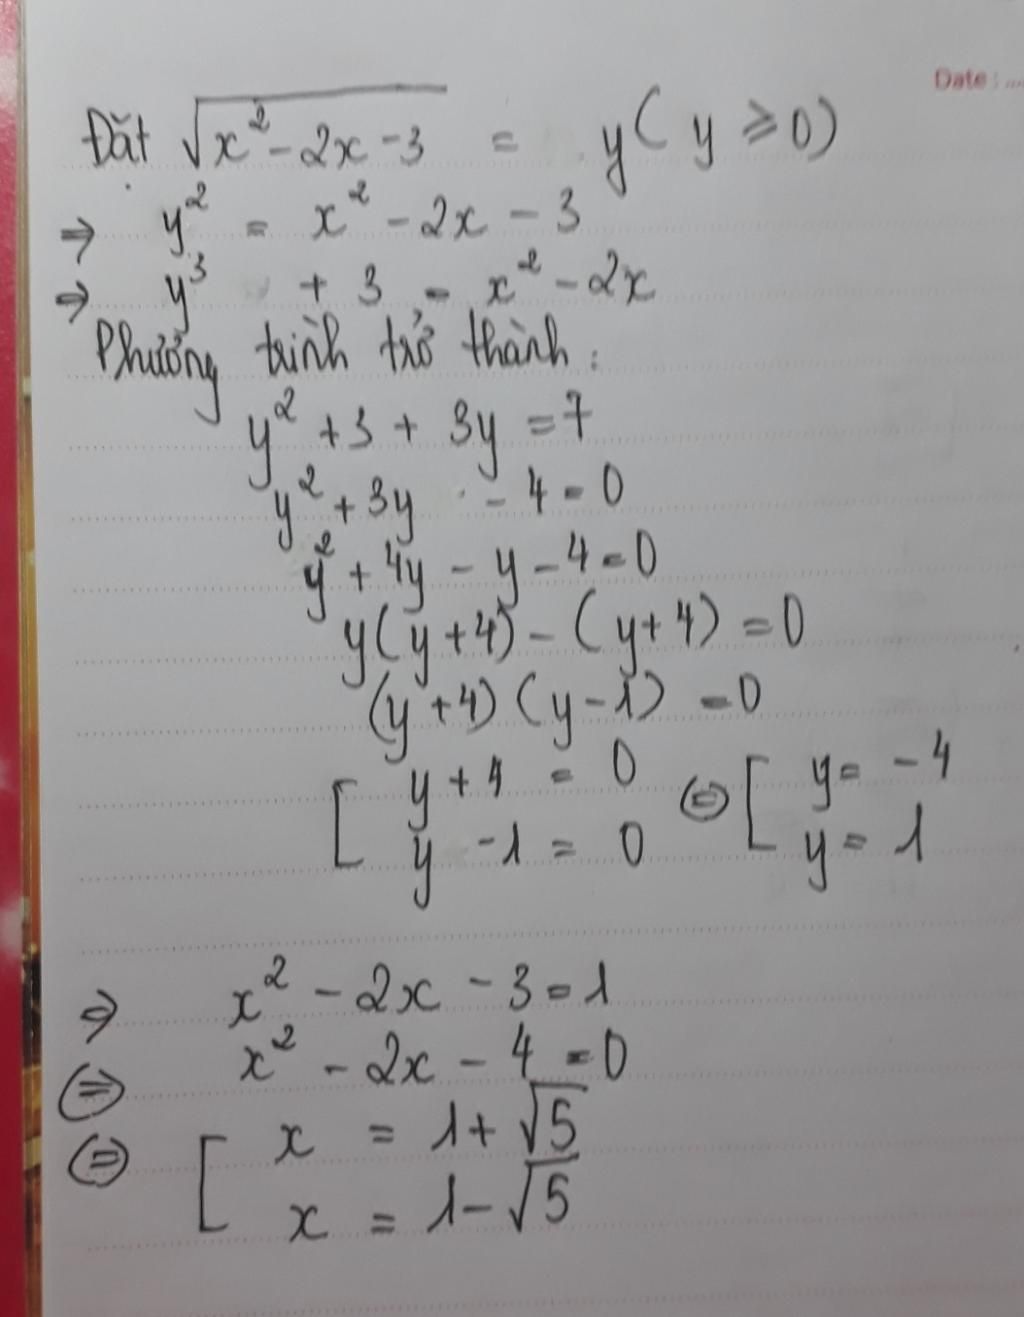 Date : ....
Đặt √(x² - 2x - 3) = y ( y ⩾ 0)
⇒ y² = x² - 2x - 3
⇒ y³ + 3 = x² - 2x
Phương trình trở thành :
y² + 3 + 3y = 7
y² + 3y - 4 = 0
y² + 4y - y - 4 = 0
y(y + 4) - (y + 4) = 0
(y + 4) (y - 1) = 0
[ y + 4 = 0 ⇔ [ y = - 4
y - 1 = 0 y = 1
⇒ x² - 2x - 3 = 1
⇔ x² - 2x - 4 = 0
⇔ [ x = 1 + √5
x = 1 - √5